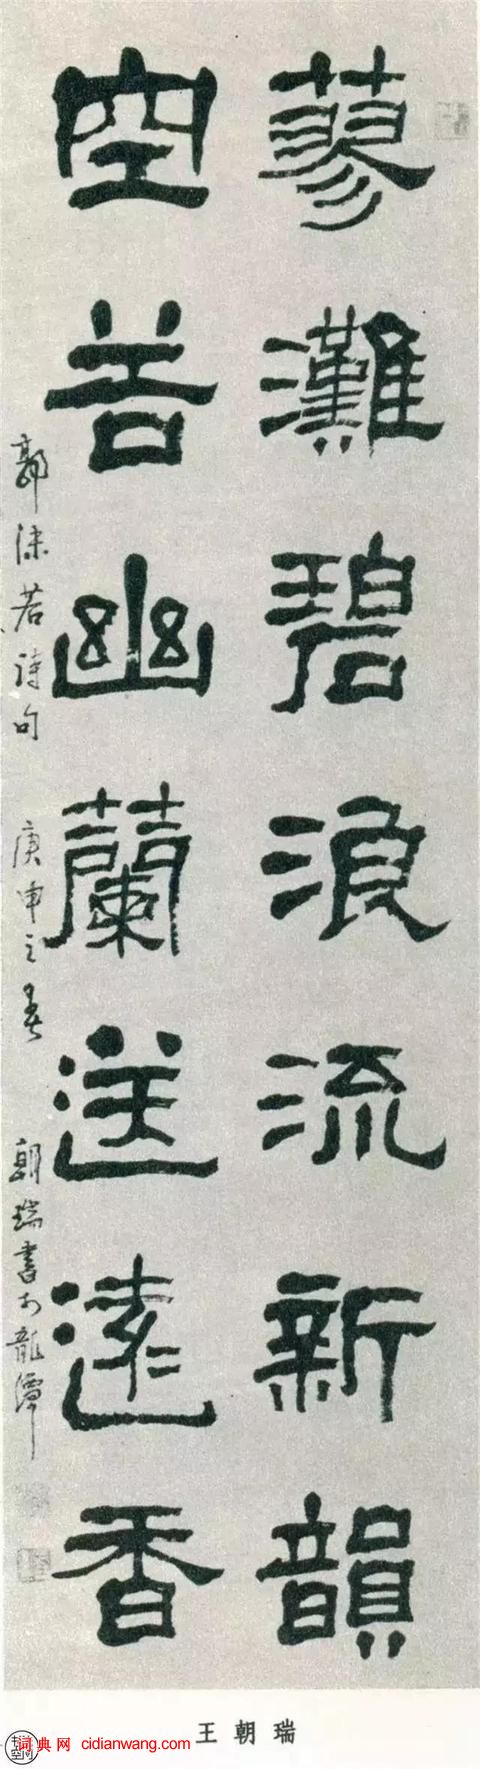 蓼灘碧浪流新韻
空谷幽蘭送遠香
郭沫若詩句 庚申之春 朝瑞書於龍潭
王朝瑞
词典网 cidianwang.com